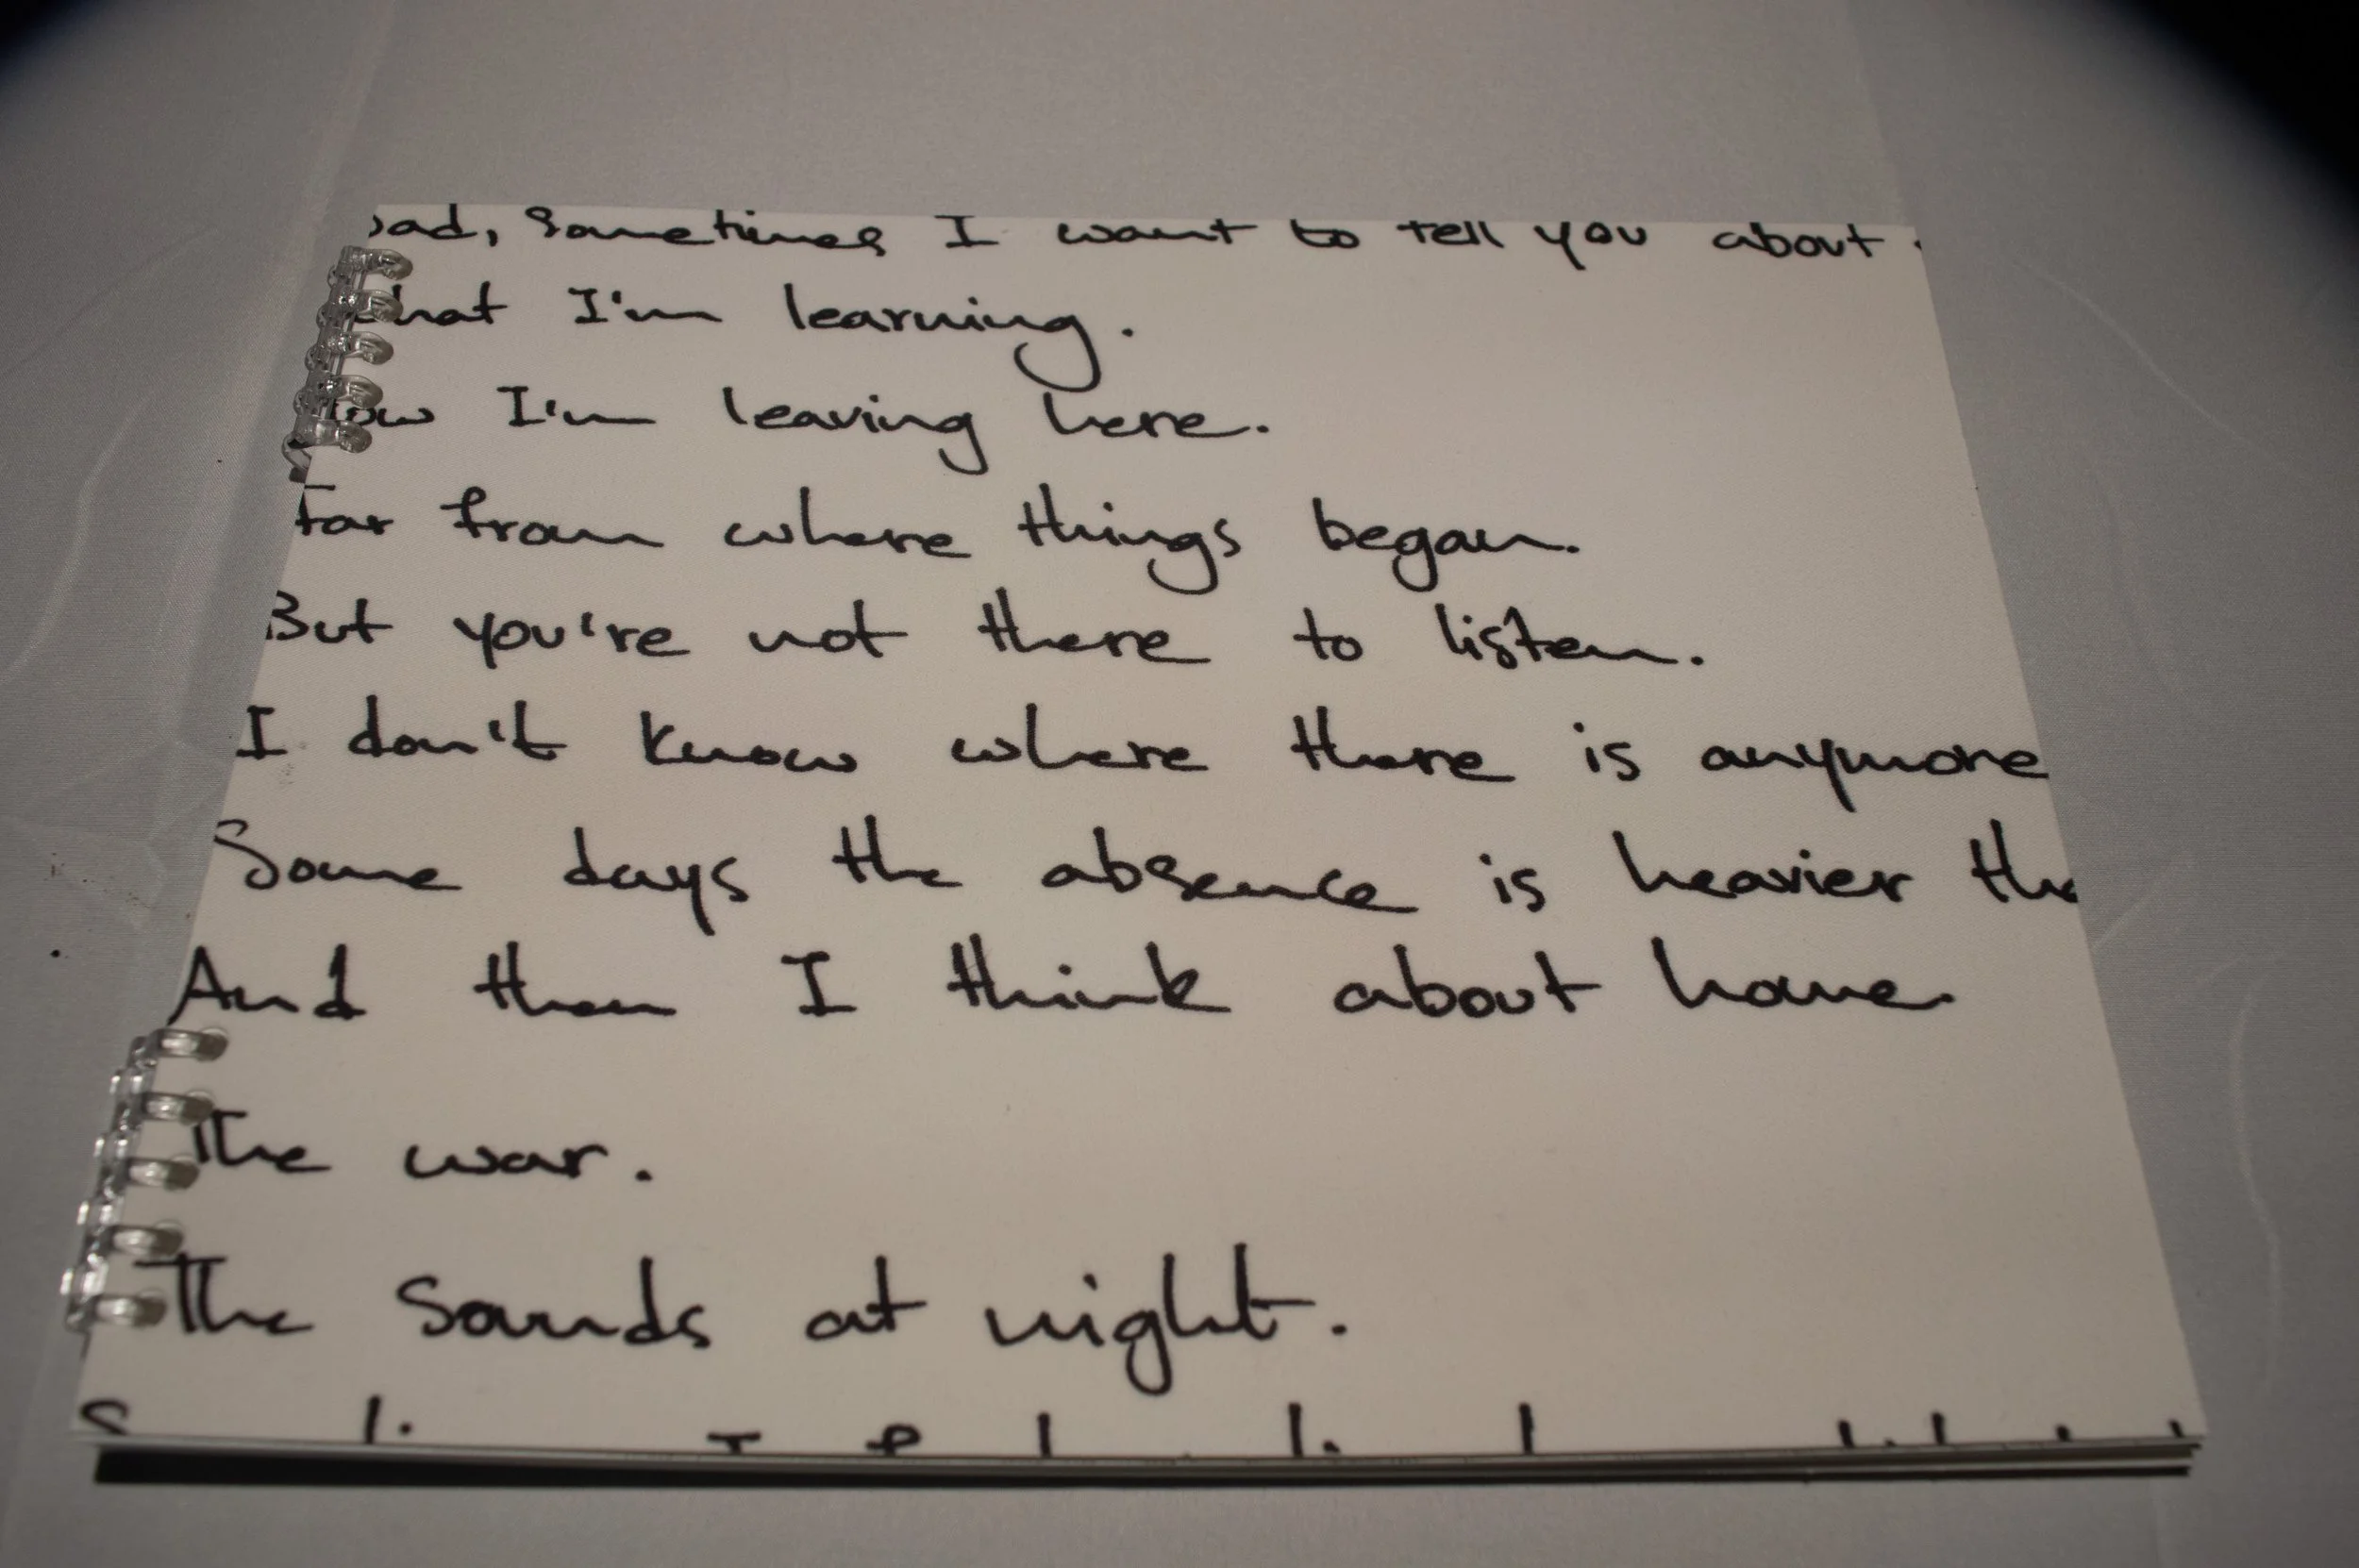 Dad, sometimes I want to tell you about
what I'm learning.
How I'm leaving here.
Far from where things began.
But you're not there to listen.
I don't know where there is anymore
Some days the absence is heavier
And then I think about home.
The war.
The sounds at night.